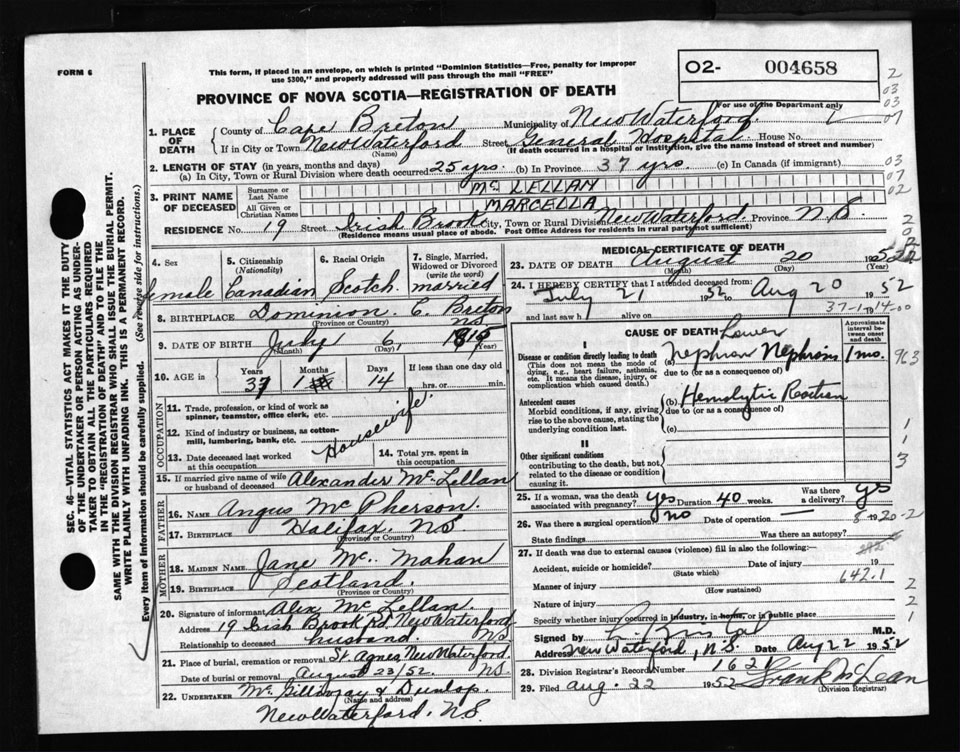 FORM 6
This form, if placed in an envelope, on which is printed "Dominion Statistics—Free, penalty for improper use $300," and properly addressed will pass through the mail "FREE"
O2- 004658
PROVINCE OF NOVA SCOTIA—REGISTRATION OF DEATH
For use of the Department only
1. PLACE OF DEATH
County of Cape Breton Municipality of New Waterford
If in City or Town New Waterford Street General Hospital House No.
(Name) (If death occurred in a hospital or institution, give the name instead of street and number)
2. LENGTH OF STAY (in years, months and days)
(a) In City, Town or Rural Division where death occurred 25 yrs. (b) In Province 37 yrs. (c) In Canada (if immigrant)
3. PRINT NAME OF DECEASED
Surname or Last Name Mc LELLAN
All Given or Christian Names MARCELLA
RESIDENCE No. 19 Street Irish Brook City, Town or Rural Division New Waterford Province N.S.
(Residence means usual place of abode. Post Office Address for residents in rural parts not sufficient)
4. Sex female
5. Citizenship (Nationality) Canadian
6. Racial Origin Scotch
7. Single, Married, Widowed or Divorced (write the word) married
8. BIRTHPLACE Dominion C. Breton N.S.
(Province or Country)
9. DATE OF BIRTH July 6, 1915
(Month) (Day) (Year)
10. AGE in Years 37 Months 1 Days 14 If less than one day old
hrs. or min.
OCCUPATION
11. Trade, profession, or kind of work as spinner, teamster, office clerk, etc.
12. Kind of industry or business, as cotton-mill, lumbering, bank, etc.
Housewife
13. Date deceased last worked at this occupation
14. Total yrs. spent in this occupation
15. If married give name of wife or husband of deceased Alexander Mc Lellan
FATHER
16. NAME Angus Mc Pherson
17. BIRTHPLACE Halifax, N.S.
(Province or Country)
MOTHER
18. MAIDEN NAME Jane Mc. Mahan
19. BIRTHPLACE Scotland.
(Province or Country)
20. Signature of informant Alex Mc Lellan.
Address 19 Irish Brook Rd New Waterford N.S
Relationship to deceased husband
21. Place of burial, cremation or removal St Agnes, New Waterford
Date of burial or removal August 23/52 N.S.
22. UNDERTAKER Mc Gillivray & Dunlop
(Name and address)
New Waterford, N.S.
MEDICAL CERTIFICATE OF DEATH
23. DATE OF DEATH August 20 1952
(Month) (Day) (Year)
24. I HEREBY CERTIFY that I attended deceased from:
July 21 1952 to Aug 20 1952
and last saw h alive on 19
37-1-14-00
CAUSE OF DEATH
Approximate interval between onset and death
I
Disease or condition directly leading to death
(This does not mean the mode of dying, e.g., heart failure, asthenia, etc. It means the disease, injury, or complication which caused death.)
(a) Lower Nephron Nephrosis 1 mo.
due to (or as a consequence of)
963
Antecedent causes
Morbid conditions, if any, giving rise to the above cause, stating the underlying condition last.
(b) Hemolytic Reaction
due to (or as a consequence of)
(c)
II
Other significant conditions
contributing to the death, but not related to the disease or condition causing it.
25. If a woman, was the death associated with pregnancy? yes Duration 40 weeks. Was there a delivery? yes
26. Was there a surgical operation? no Date of operation
State findings Was there an autopsy?
27. If death was due to external causes (violence) fill in also the following:—
Accident, suicide or homicide? Date of injury 19
(State which)
642.1
Manner of injury
(How sustained)
Nature of injury
Specify whether injury occurred in industry, in home, or in public place
Signed by M.D.
Address New Waterford, N.S. Date Aug 22 1952
28. Division Registrar's Record Number 1621
29. Filed Aug. 22 1952 Frank McLean
(Division Registrar)
SEC. 46—VITAL STATISTICS ACT MAKES IT THE DUTY OF THE UNDERTAKER OR PERSON ACTING AS UNDERTAKER TO OBTAIN ALL THE PARTICULARS REQUIRED IN THE "REGISTRATION OF DEATH" AND TO FILE THE SAME WITH THE DIVISION REGISTRAR WHO SHALL ISSUE THE BURIAL PERMIT.
WRITE PLAINLY WITH UNFADING INK. THIS IS A PERMANENT RECORD.
Every item of information should be carefully supplied. (See reverse side for instructions.)